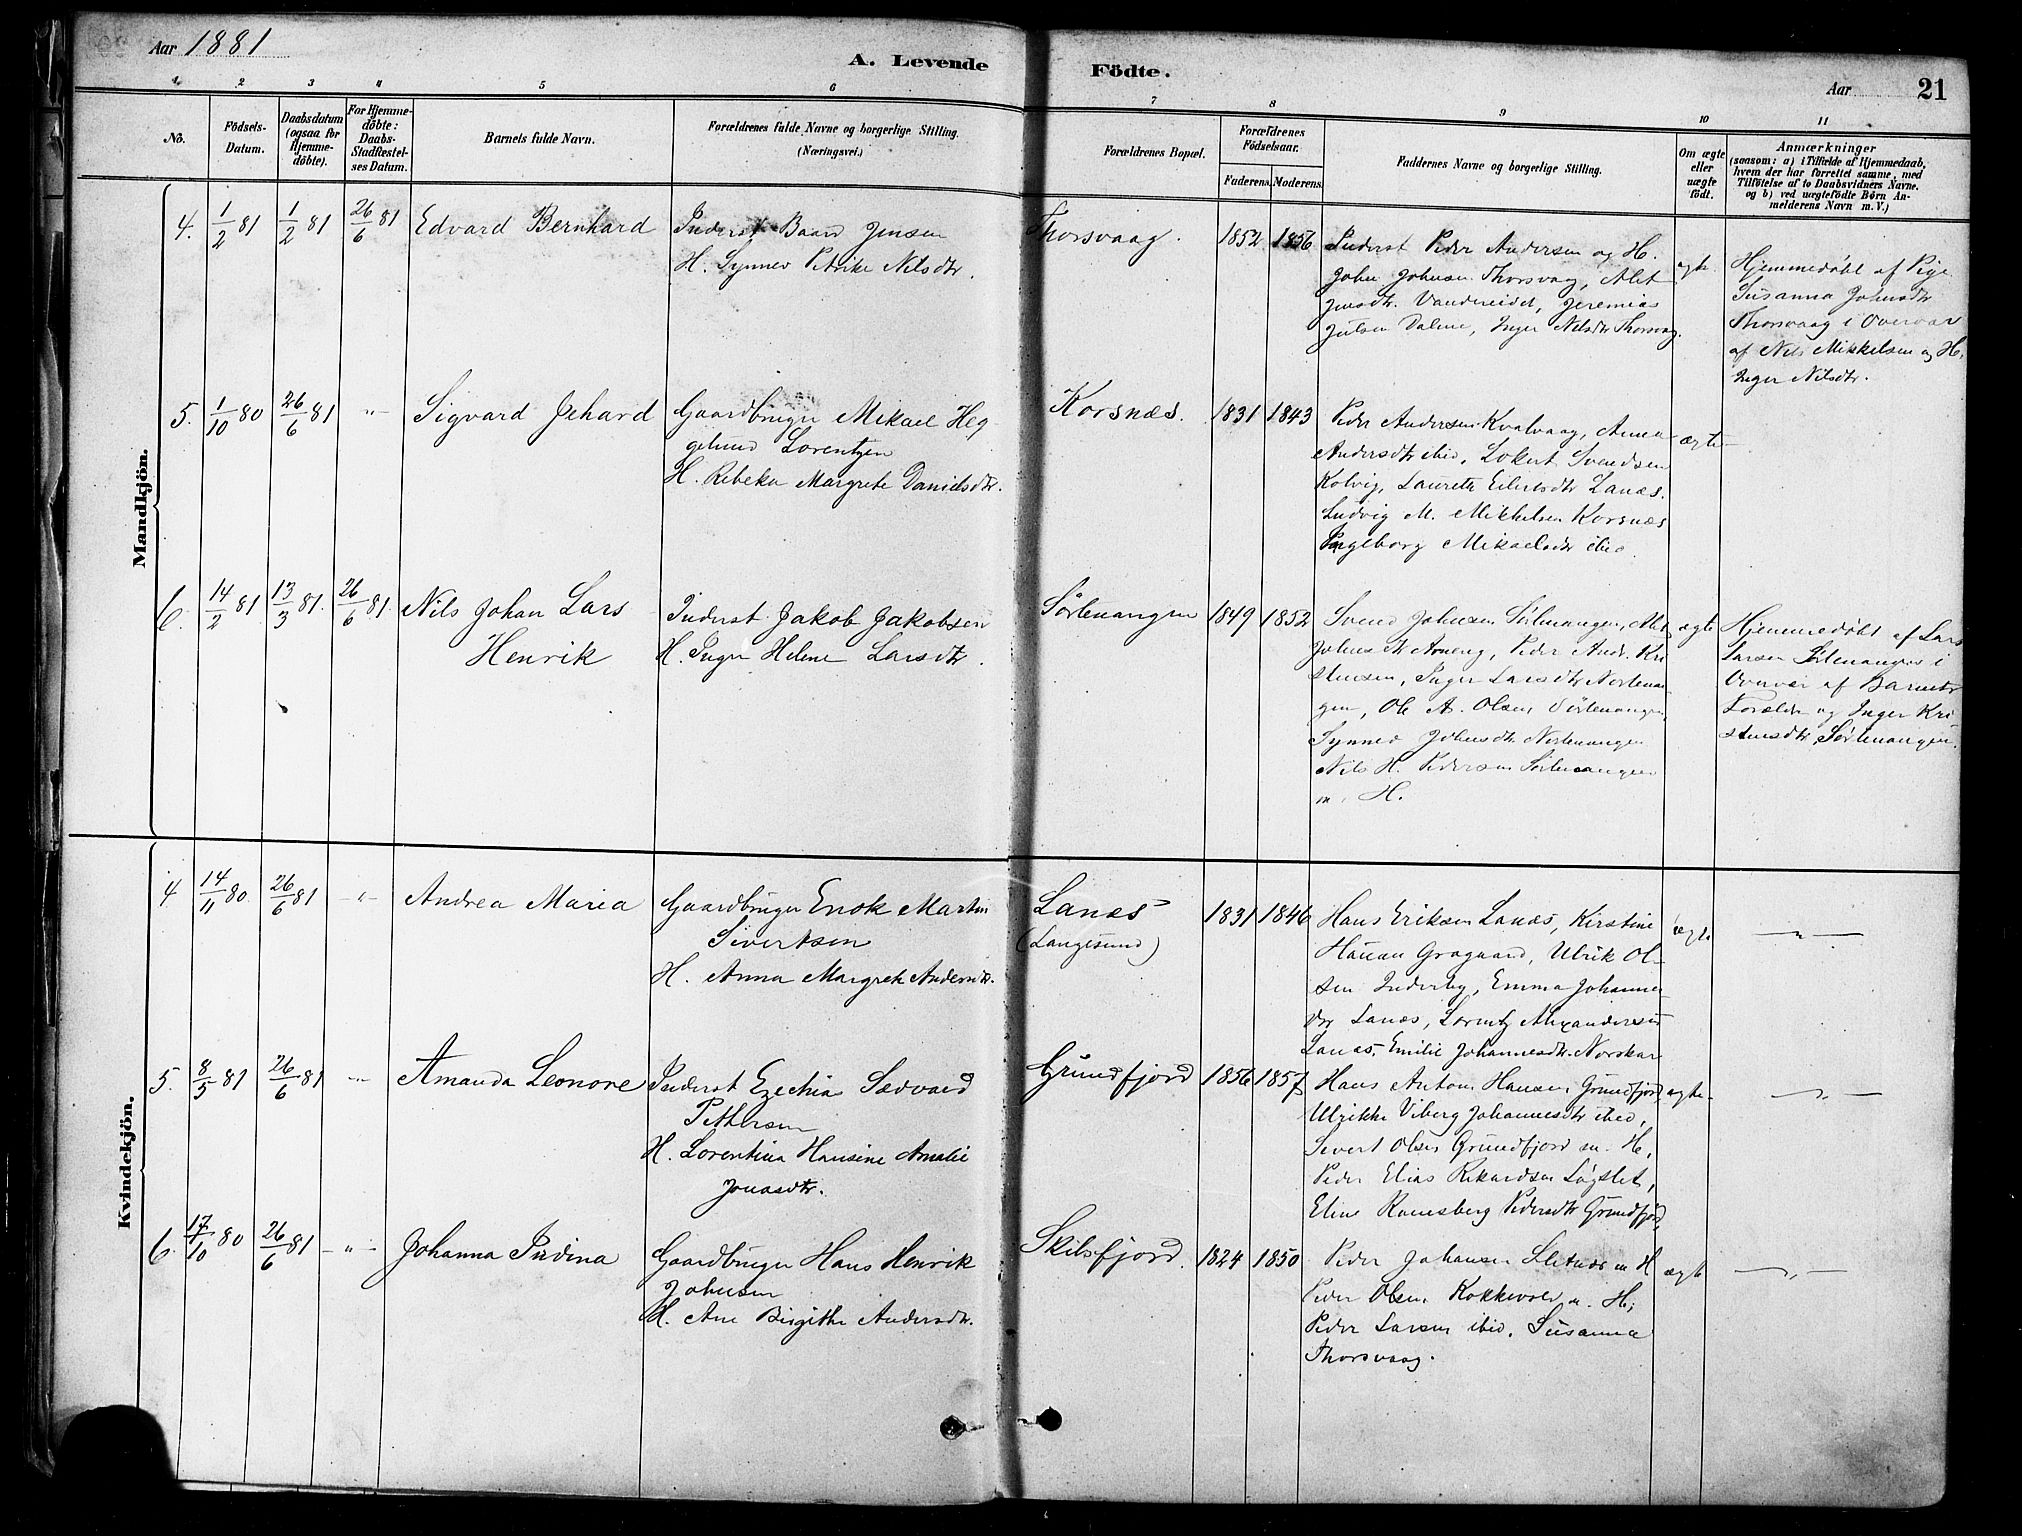 Aar 1881
A. Levende Födte.
Aar 21
1 2 3 4 5 6 7 8 9 10 11
No.
Födsels-Datum.
Daabsdatum (ogsaa for Hjemme-döbte).
For Hjemme-döbte: Daabs-Stadfæstel-ses Datum.
Barnets fulde Navn.
Forældrenes fulde Navne og borgerlige Stilling. (Næringsvei.)
Forældrenes Bopæl.
Forældrenes Födselsaar.
Faderens. Moderens.
Faddernes Navne og borgerlige Stilling.
Om ægte eller uægte födt.
Anmærkninger
(saasom: a) i Tilfælde af Hjemmedaab,
hvem der har forrettet samme, med
Tilföielse af to Daabsvidners Navne.
og b) ved uægtefödte Börn An-
melderens Navn m. V.)
Mandkjön.
4. 1/2 81 1/2 81 26/6 81 Edvard Bernhard
Inderst Baard Jensen
H. Synnev Petrike Nilsdtr.
Thorsvaag. 1852 1856
Inderst Peder Andersen og H.
John Johnsen Thorsvag, Alet
Jensdtr. Vandereidet, Jeremias
Julsen Dalene, Inger Nilsdtr Thorsvag.
ægte.
Hjemmedøbt af Pige
Susanna Johnsdtr
Thorsvaag i Overvær
af Nils Mikkelsen og H.
Inger Nilsdtr.
5. 1/10 80 26/6 81 -"- Sigvard Jehard
Gaardbruger Mikael Heg-
gelund Lorentzen
H. Rebeka Margrete Danielsdtr.
Korsnæs. 1831 1843
Peder Andersen Kvalvaag, Anna
Andersdtr ibid, Lokert Svendsen
Kolvig, Laurette Eilertsdtr Lanæs.
Ludvig M. Mikkelsen Korsnæs
Ingeborg Mikaelsdtr ibid.
ægte
6. 14/2 81 13/3 81. 26/6 81. Nils Johan Lars
Henrik
Inderst Jakob Jakobsen
H. Inger Helene Larsdtr.
Sørlenangen 1849 1852
Svend Johnsen Sørlenangen,
Peder Andr. Kri
stensen, Inger Larsdtr Nortenan
gen, Ole A. Olsen Sørlenangen
Synnev Johnsdtr Nortenangen
Nils H. Pedersen Sørlenangen
m. H.
ægte
Hjemmedøbt af Lars
Larsen Sørlenangen i
Overvær af Barnets
Forældre og Inger Kri
stensdtr, Sørlenangen.
Kvindekjön.
4 14/11 80. 26/6 81 -"- Andrea Maria
Gaardbruger Enok Martin
Sivertsen
H. Anna Margrete Andersdtr.
Lanæs
(Langesund)
1831 1846
Hans Eriksen Lanæs, Kirstine
Hauan Graagaard, Ulrik Ol-
sen Inderby, Emma Johanne-
dtr Lanæs, Lorentz Alexandersen
Lanæs, Emilie Johannesdtr. Norskar
ægte -"-
5. 8/5 81 26/6 81 -"- Amanda Leonore
Inderst Ezechias Sedvard
Pethersen
H. Lorentina Hansine Amalie
Jonasdtr.
Grundfjord 1856 1857
Hans Anton Hansen Grundfjord,
Ulrikke Viberg Johannesdtr ibid,
Sivert Olsen Grundfjord m. H,
Peder Elias Rikardsen Løgslet,
Eline Ramsberg Pedersdtr Grundfjord,
ægte. -"-
6. 17/10 80 26/6 81 -"- Johanna Indina
Gaardbruger Hans Henrik
Johnsen
H. Ane Birgithe Andersdtr.
Skilsfjord. 1824 1850
Peder Johansen Sletnæs m H
Peder Olsen Kokkevold m. H;
Peder Larsen ibid, Susanna
Thorsvaag.
ægte -"-